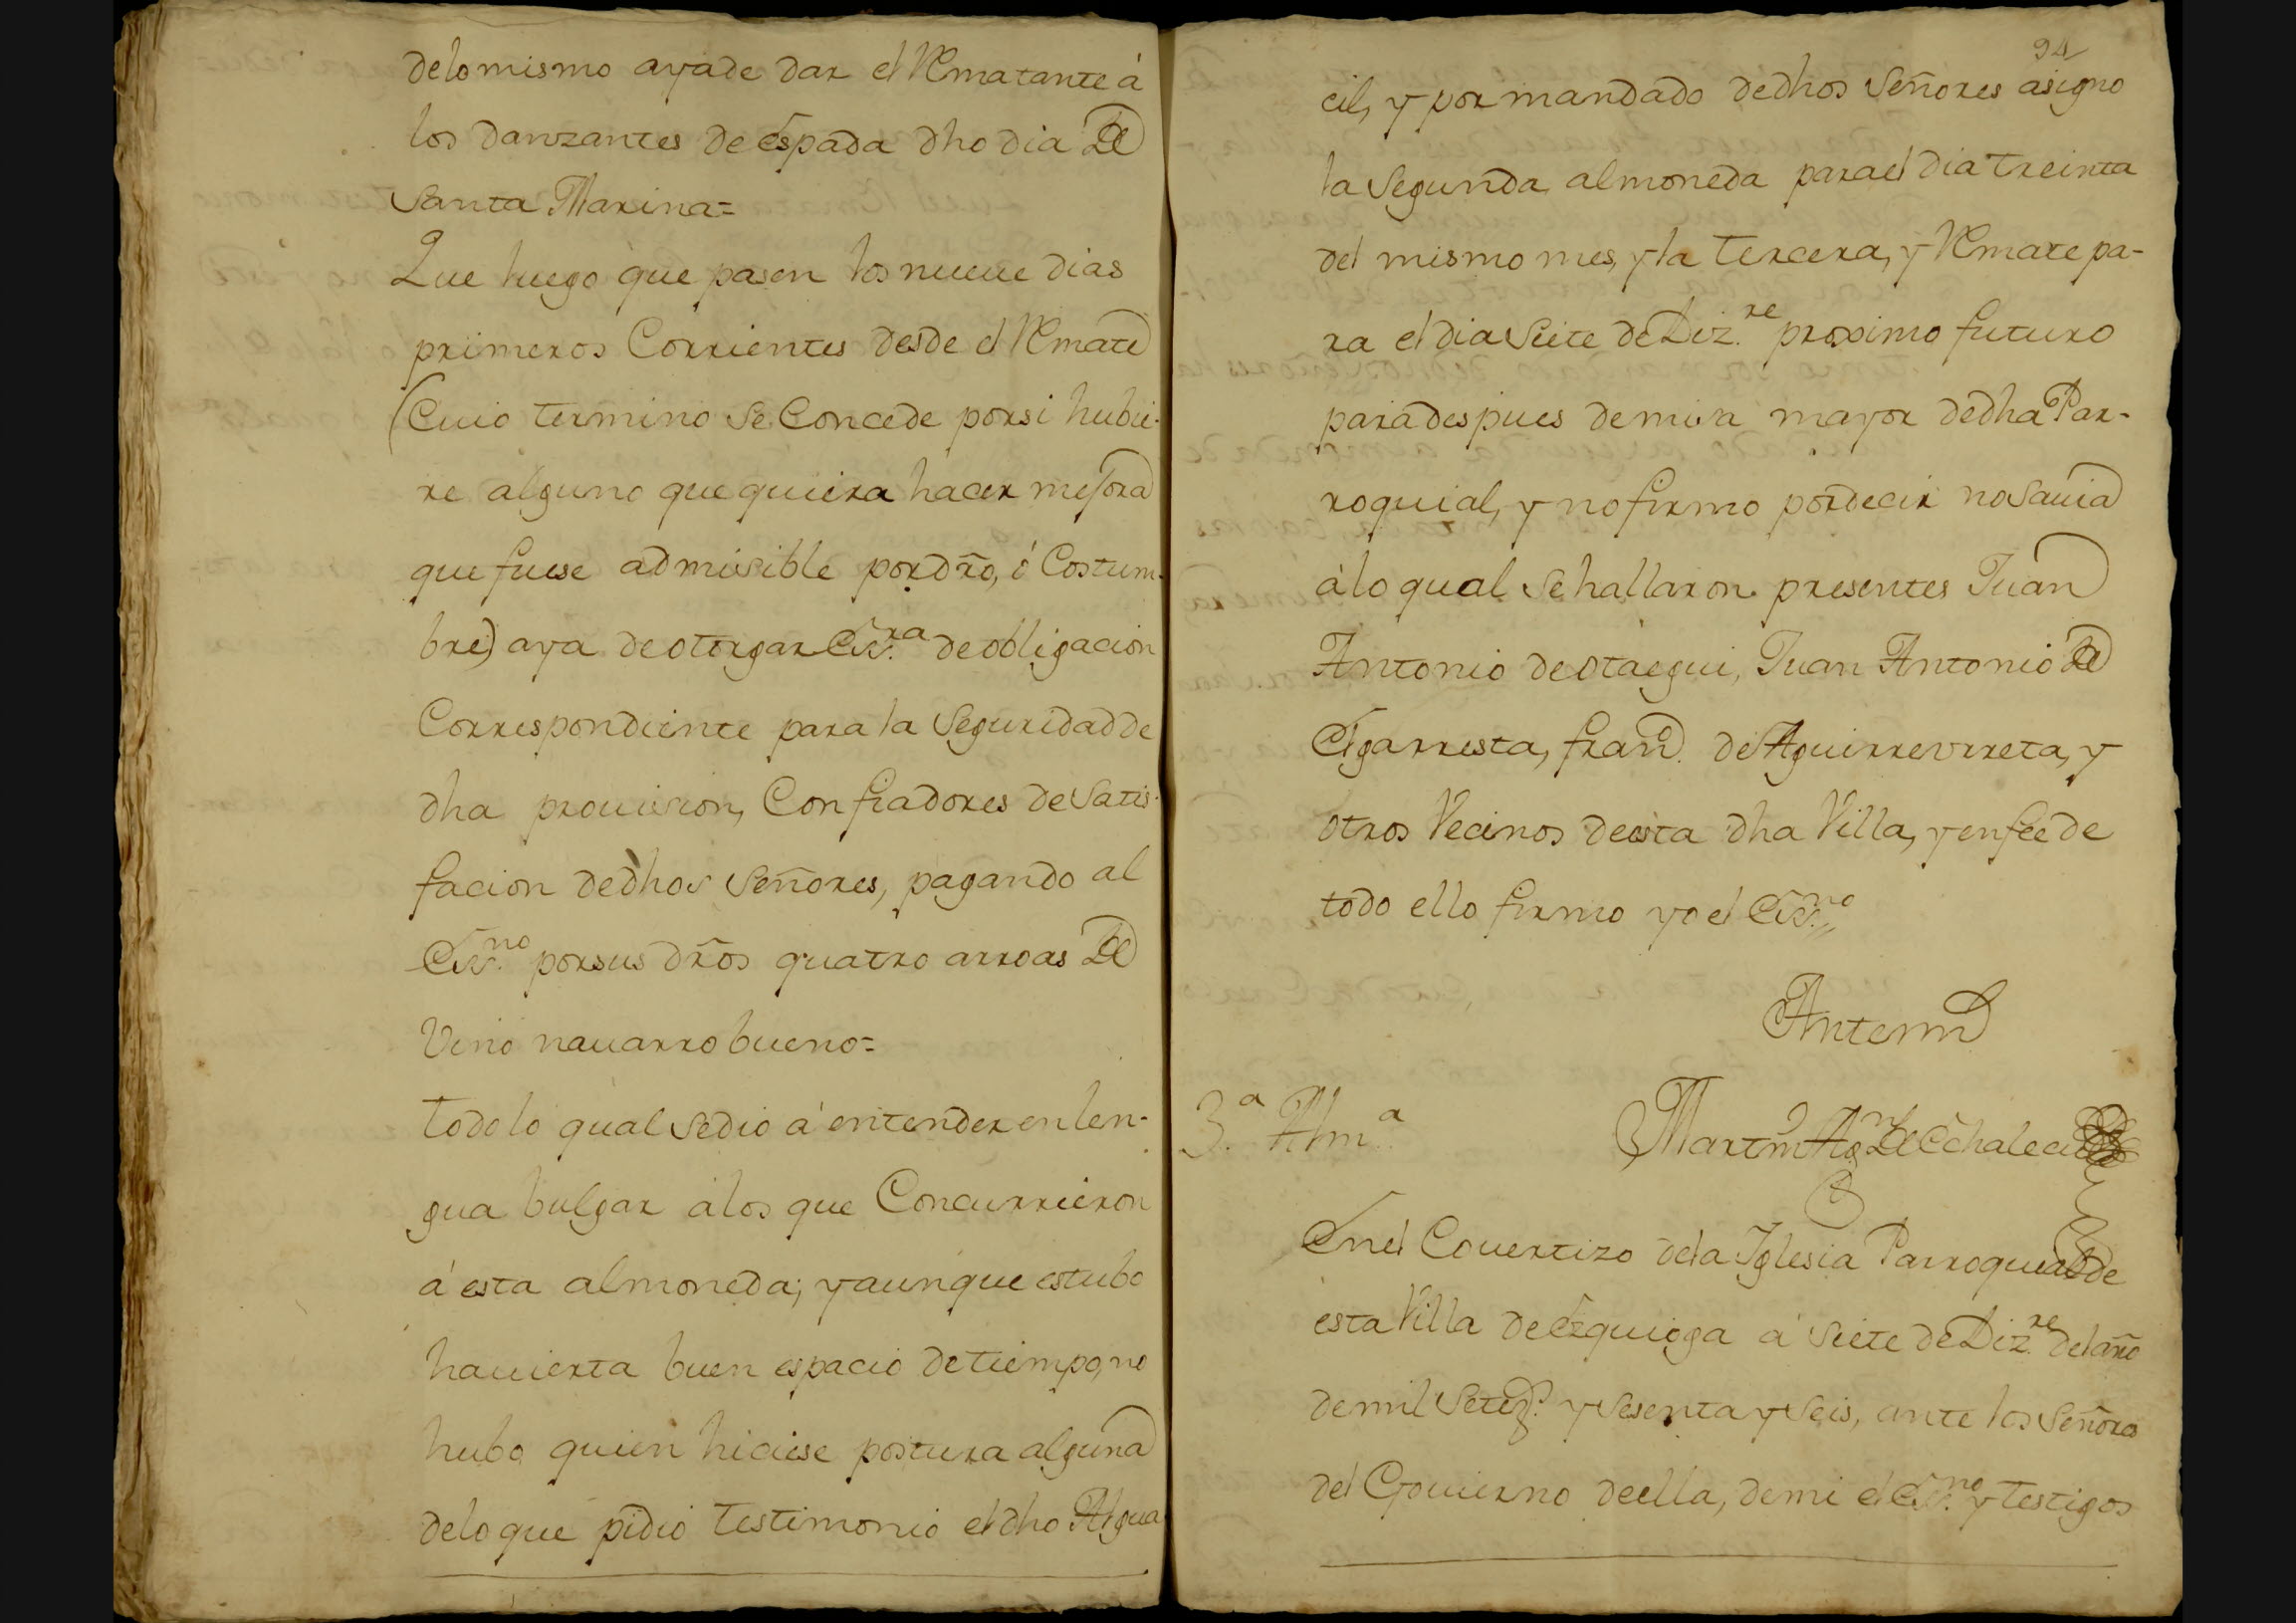 delo mismo aya de dar el Rematante â
los danzantes de espada dho dia de
Santa Marina=
Que luego que pasen los nueue dias
primeros Corrientes desde el Remate
(Cuio termino se Concede por si hubie-
re alguno que quiera hacer mejora
que fuese admisible por dr̃o, ó Costum-
bre) aya de otorgar Esc.ra de obligacion
Correspondiente para la Seguridad de
dha prouision, Con fiadores de Satis-
facion de dhos Señores, pagando al
Esc.no por sus dr̃os quatro arroas de
Vino nauarro bueno=
Todo lo qual se dio á entender en len-
gua bulgar álos que Concurrieron
á esta almoneda; y aunque estubo
hauierta buen espacio de tiempo, no
hubo quien hiciese postura alguna
delo que pidio testimonio el dho Algua
94
cil, y por mandado de dhos Señores asigno
la Segunda almoneda para el dia treinta
del mismo mes, y la tercera, y Remate pa-
ra el dia Siete de Diz.re proximo futuro
para despues de misa mayor de dha Par-
roquial, y no firmo por decir no sauia
álo qual se hallaron presentes Juan
Antonio de Otaegui, Juan Antonio de
Elgarresta, fran.co de Aguirreurreta, y
otros Vecinos de esta dha Villa, y en fee de
todo ello firmo yo el Esc.no
Antemi
Martin Ag.n de Echalecu
3.a Alm.a
En el Couertizo dela Iglesia Parroquial de
esta Villa de Ezquioga á Siete de Diz.re del año
de mil Setez.s y sesenta y seis, ante los Señores
del Gouierno de ella, de mi el Esc.no y testigos